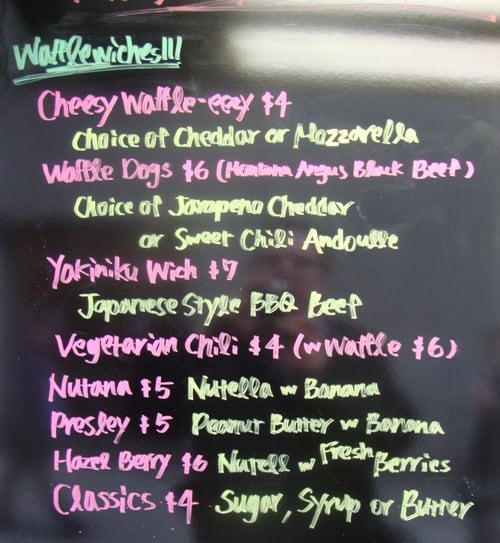 Wafflewiches!!!
Cheesy Waffle-eeey $4
Choice of Cheddar or Mozzarella
Waffle Dogs $6 (Montana Angus Black Beef)
Choice of Jarapeno Cheddar
or Sweet Chili Andouille
Yakiniku Wich $7
Japanese Style BBQ Beef
Vegetarian Chili $4 (w Waffle $6)
Nutana $5 Nutella w Banana
Presley $5 Peanut Butter w Banana
Hazel Berry $6 Nutell w Fresh Berries
Classics $4 Sugar, Syrup or Butter